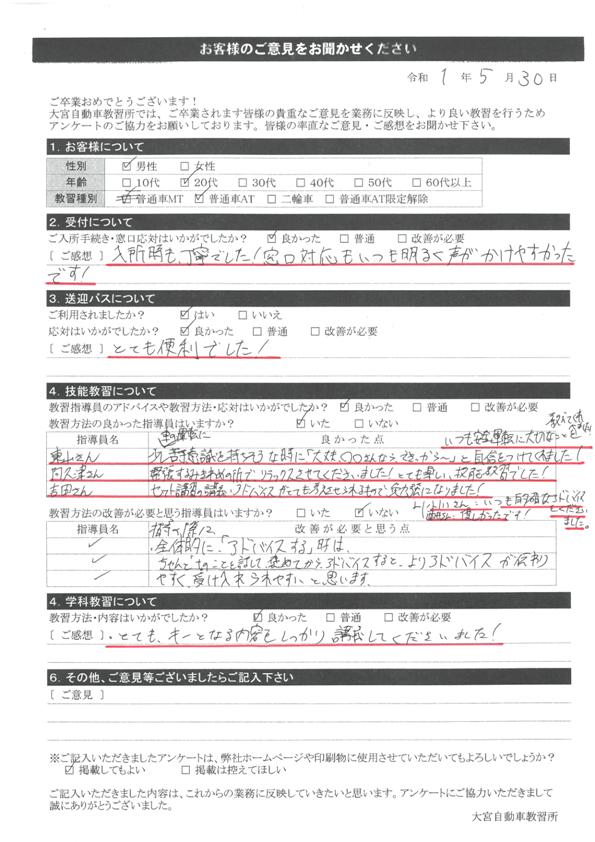 お客様のご意見をお聞かせください
令和 1 年 5 月 30 日
ご卒業おめでとうございます！
大宮自動車教習所では、ご卒業されます皆様の貴重なご意見を業務に反映し、より良い教習を行うため
アンケートのご協力をお願いしております。皆様の率直なご意見・ご感想をお聞かせ下さい。
1. お客様について
性別 ☑男性 □女性
年齢 □10代 ☑20代 □30代 □40代 □50代 □60代以上
教習種別 ☑普通車MT ☑普通車AT □二輪車 □普通車AT限定解除
2. 受付について
ご入所手続き・窓口応対はいかがでしたか？ ☑良かった □普通 □改善が必要
[ ご感想 ] 入所時も、丁寧でした！窓口対応もいつも明るく声がかけやすかった
です！
3. 送迎バスについて
ご利用されましたか？ ☑はい □いいえ
応対はいかがでしたか？ ☑良かった □普通 □改善が必要
[ ご感想 ] とても便利でした！
4. 技能教習について
教習指導員のアドバイスや教習方法・応対はいかがでしたか？ ☑良かった □普通 □改善が必要
教習方法の良かった指導員はいますか？ ☑いた □いない
指導員名 良かった点
車の運転に
いつも安全運転に大切なことを
東山さん 少し苦手意識を持ちそうな時に「大丈夫〇〇さんならできっから〜」と自信をつけてくれました！
阿久津さん 緊張するみきわめの所で、リラックスさせてくださいました！とても楽しい、技能教習でした！
吉田さん セット講習の講義・アドバイス
教習方法の改善が必要と思う指導員はいますか？ □いた ☑いない
いつも的確なアドバイス
指導員名 改善が必要と思う点
・全体的に、「アドバイスする」時は、
アドバイスすると、よりアドバイスが伝わり
やすく、受け入れられやすいと思います。
4. 学科教習について
教習方法・内容はいかがでしたか？ ☑良かった □普通 □改善が必要
[ ご感想 ] ・とても、キーとなる内容をしっかり講義してくださいました！
6. その他、ご意見等ございましたらご記入下さい
[ ご意見 ]
※ご記入いただきましたアンケートは、弊社ホームページや印刷物に使用させていただいてもよろしいでしょうか？
☑掲載してもよい □掲載は控えてほしい
ご記入いただきました内容は、これからの業務に反映していきたいと思います。アンケートにご協力いただきまして
誠にありがとうございました。
大宮自動車教習所